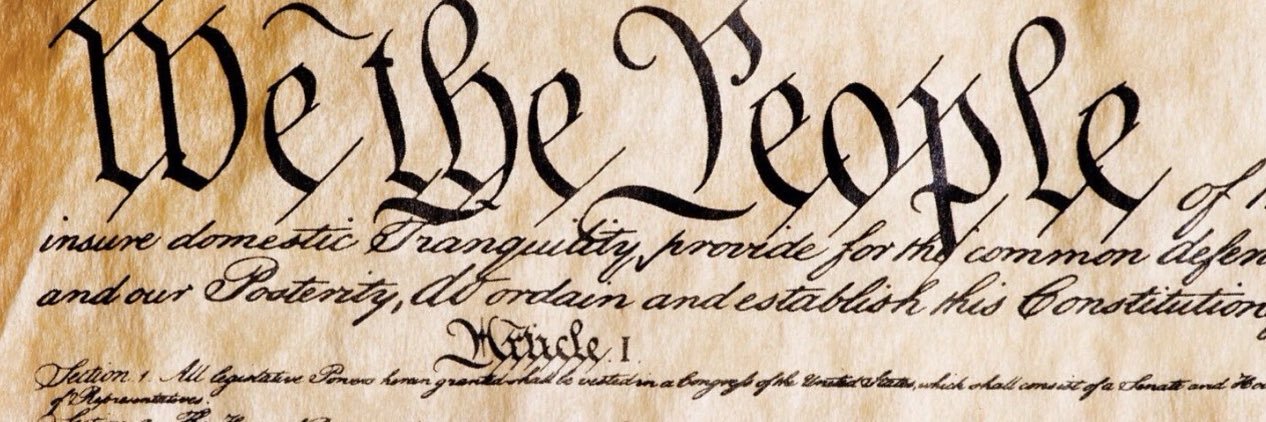 We the People of
insure domestic Tranquility, provide for the common defen
and our Posterity, do ordain and establish this Constitution
Article I
Section. 1. All legislative Powers herein granted shall be vested in a Congress of the United States, which shall consist of a Senate and Hou
of Representatives.
Section. 2. The